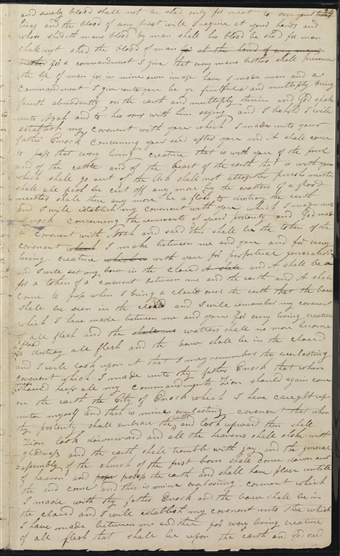 and surely blood shall not be shed only for meat to save your lives
and the blood of every beast will I require at your hands and
whoso sheddeth mans blood by man shall his blood be shed for man
shall not shed the blood of man
for a commandment I give that every mans brother shall preserve
the life of man for in mine own image have I made man and a
commandment I give unto you be ye fruitful and multiply bring
forth abundantly on the earth and multiply therein and God spake
unto Noah and to his sons with him saying and I behold I will
establish my covenant with you which I made unto your
father Enoch concerning your seed after you and it shall come
to pass that every living creature that is with you of the fowl
and of the cattle and of the beast of the earth that is with you
which shall go out of the ark shall not altogether perish neither
shall all flesh be cut off any more by the waters of a flood
neither shall there any more be a flood to destroy the earth
and I will establish my covenant with you which I made unto
Enoch concerning the remnants of your posterity and God made
a covenant with Noah and said this shall be the token of the
covenant I make between me and you and for every
living creature with you for perpetual generations
and I will set my bow in the cloud and it shall be
for a token of a covenant between me and the earth and it shall
come to pass when I bring a cloud over the earth that the bow
shall be seen in the cloud and I will remember my covenant
which I have made between me and you for every living creature
of all flesh and the waters shall no more become
a flood to destroy all flesh and the bow shall be in the cloud
and I will look upon it that I may remember the everlasting
covenant which I made unto thy father Enoch that when
men should keep all my commandments Zion should again come
on the earth the City of Enoch which I have caught up
unto myself and this is mine everlasting covenant that when
thy posterity shall embrace the truth and look upward then shall
Zion look downward and all the heavens shall shake with
gladness and the earth shall tremble with joy and the general
assembly of the church of the first born shall come down out
of heaven and possess the earth and shall have place until
the end come and this is mine everlasting covenant which
I made with thy father Enoch and the bow shall be in
the cloud and I will establish my covenant unto thee which
I have made between me and thee for every living creature
of all flesh that shall be upon the earth and God said